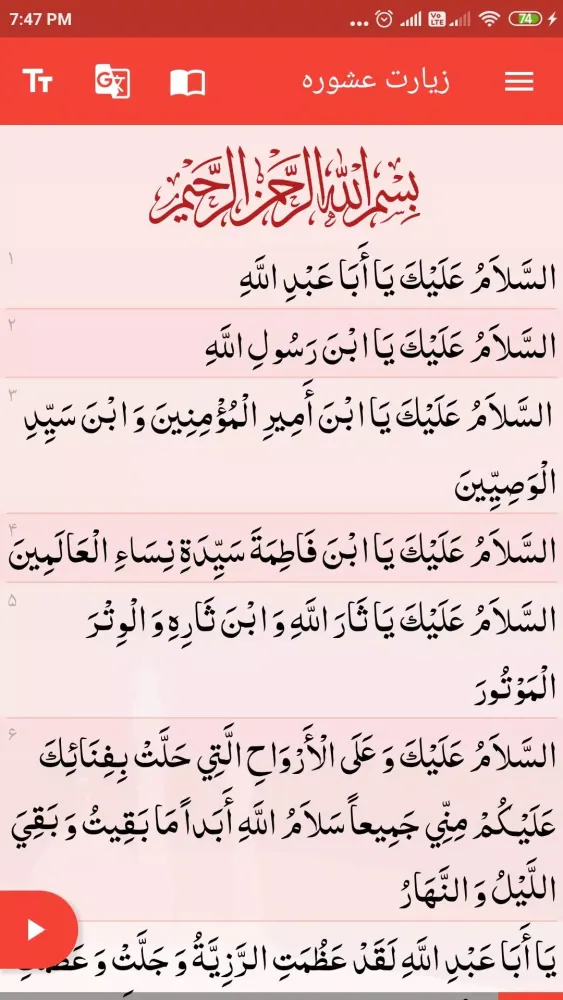 7:47 PM
Vo LTE
74
زیارت عشوره
بِسْمِ اللهِ الرَّحْمٰنِ الرَّحِيْمِ
۱
السَّلاَمُ عَلَيْكَ يَا أَبَا عَبْدِ اللَّهِ
۲
السَّلاَمُ عَلَيْكَ يَا ابْنَ رَسُولِ اللَّهِ
۳
السَّلاَمُ عَلَيْكَ يَا ابْنَ أَمِيرِ الْمُؤْمِنِينَ وَ ابْنَ سَيِّدِ
الْوَصِيِّينَ
۴
السَّلاَمُ عَلَيْكَ يَا ابْنَ فَاطِمَةَ سَيِّدَةِ نِسَاءِ الْعَالَمِينَ
۵
السَّلاَمُ عَلَيْكَ يَا ثَارَ اللَّهِ وَ ابْنَ ثَارِهِ وَ الْوِتْرَ
الْمَوْتُورَ
۶
السَّلاَمُ عَلَيْكَ وَ عَلَى الْأَرْوَاحِ الَّتِي حَلَّتْ بِفِنَائِكَ
عَلَيْكُمْ مِنِّي جَمِيعاً سَلاَمُ اللَّهِ أَبَداً مَا بَقِيتُ وَ بَقِيَ
اللَّيْلُ وَ النَّهَارُ
يَا أَبَا عَبْدِ اللَّهِ لَقَدْ عَظُمَتِ الرَّزِيَّةُ وَ جَلَّتْ وَ